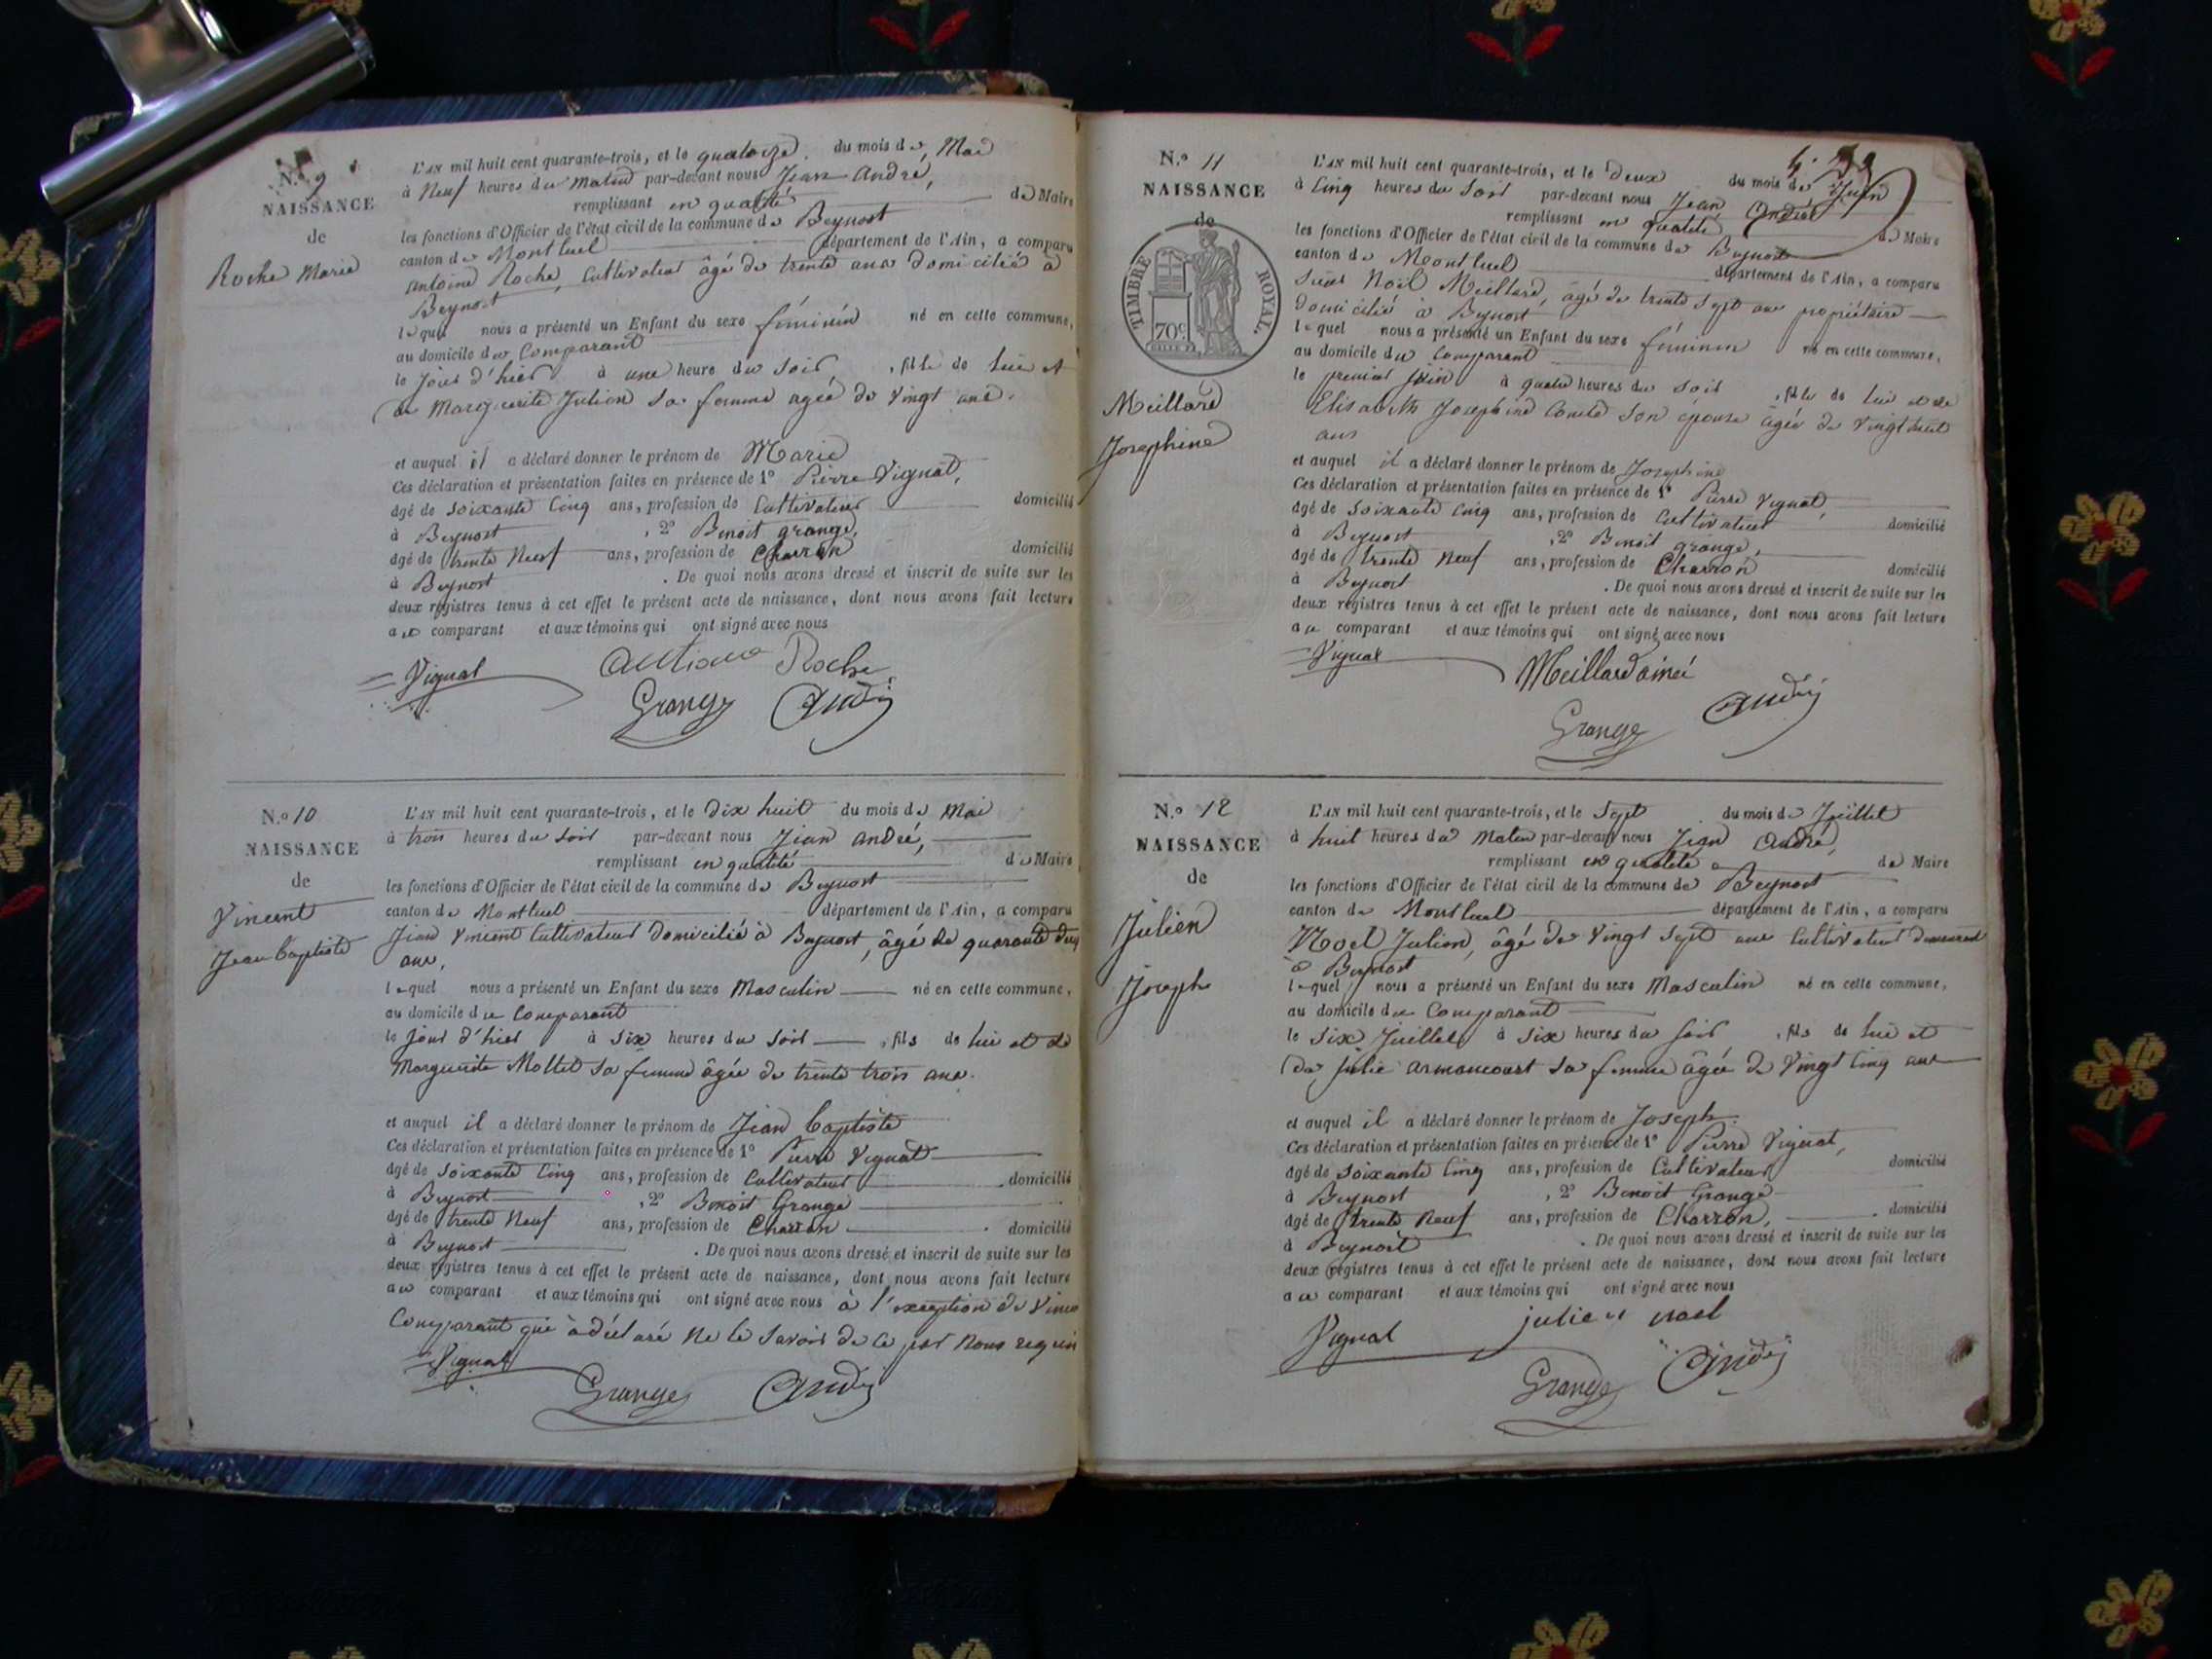 N.º 9
NAISSANCE
de
Roche Marie
L'AN mil huit cent quarante-trois, et le quatorze du mois de Mai
à Neuf heures du matin par-devant nous Jean André,
remplissant en qualité de Maire
les fonctions d'Officier de l'état civil de la commune de Beynost
canton de Montluel département de l'Ain, a comparu
antoine Roche, Cultivateur âgé de trente ans domicilié à
Beynost
lequel nous a présenté un Enfant du sexe féminin né en cette commune,
au domicile du Comparant
le Jour d'hier à une heure du soir, fille de lui et
de Marguerite Julien sa femme agée de vingt ans.
et auquel il a déclaré donner le prénom de Marie
Ces déclaration et présentation faites en présence de 1º Pierre Vignat,
âgé de soixante Cinq ans, profession de Cultivateur domicilié
à Beynost, 2º Benoit grange,
âgé de trente Neuf ans, profession de Charron domicilié
à Beynost. De quoi nous avons dressé et inscrit de suite sur les
deux registres tenus à cet effet le présent acte de naissance, dont nous avons fait lecture
au comparant et aux témoins qui ont signé avec nous
Vignat Antione Roche
Grange André
N.º 10
NAISSANCE
de
Vincent
Jean baptiste
L'AN mil huit cent quarante-trois, et le dix huit du mois de Mai
à trois heures du soir par-devant nous Jean andré,
remplissant en qualité de Maire
les fonctions d'Officier de l'état civil de la commune de Beynost
canton de Montluel département de l'Ain, a comparu
Jean Vincent Cultivateur domicilié à Beynost, âgé de quarante
ans,
lequel nous a présenté un Enfant du sexe Masculin né en cette commune,
au domicile du Comparant
le jour d'hier à six heures du soir, fils de lui et de
Marguerite Mollet sa femme âgée de trente trois ans.
et auquel il a déclaré donner le prénom de Jean baptiste
Ces déclaration et présentation faites en présence de 1º Pierre Vignat
âgé de soixante Cinq ans, profession de Cultivateur domicilié
à Beynost, 2º Benoit Grange
âgé de trente Neuf ans, profession de Charron domicilié
à Beynost. De quoi nous avons dressé et inscrit de suite sur les
deux registres tenus à cet effet le présent acte de naissance, dont nous avons fait lecture
au comparant et aux témoins qui ont signé avec nous à l'exception de
Comparant qui a déclaré ne le savoir de ce par nous requis
Vignat
Grange André
N.º 11
NAISSANCE
de
TIMBRE ROYAL.
70c.
Meillard
Josephine
L'AN mil huit cent quarante-trois, et le Deux du mois de Juin
à Cinq heures du soir par-devant nous Jean André
remplissant en qualité de Maire
les fonctions d'Officier de l'état civil de la commune de Beynost
canton de Montluel département de l'Ain, a comparu
Sieur Noël Meillard, âgé de trente sept ans propriétaire
domicilié à Beynost
lequel nous a présenté un Enfant du sexe féminin né en cette commune,
au domicile du Comparant
le premier Juin à quatre heures du soir, fille de lui et de
Elisabeth Josephine Comte son épouse âgée de vingt huit
ans
et auquel il a déclaré donner le prénom de Josephine
Ces déclaration et présentation faites en présence de 1º Pierre Vignat,
âgé de soixante Cinq ans, profession de Cultivateur domicilié
à Beynost, 2º Benoit grange,
âgé de trente Neuf ans, profession de Charron domicilié
à Beynost. De quoi nous avons dressé et inscrit de suite sur les
deux registres tenus à cet effet le présent acte de naissance, dont nous avons fait lecture
au comparant et aux témoins qui ont signé avec nous
Vignat Meillard ainé
Grange André
N.º 12
NAISSANCE
de
Julien
Joseph
L'AN mil huit cent quarante-trois, et le Sept du mois de Juillet
à huit heures du Matin par-devant nous Jean André,
remplissant en qualité de Maire
les fonctions d'Officier de l'état civil de la commune de Beynost
canton de Montluel département de l'Ain, a comparu
Noel Julien, âgé de vingt sept ans Cultivateur demeurant
à Beynost
lequel nous a présenté un Enfant du sexe Masculin né en cette commune,
au domicile du Comparant
le six Juillet à six heures du soir, fils de lui et
de Julie armancourt sa femme âgée de vingt Cinq ans
et auquel il a déclaré donner le prénom de Joseph
Ces déclaration et présentation faites en présence de 1º Pierre Vignat,
âgé de soixante Cinq ans, profession de Cultivateur domicilié
à Beynost, 2º Benoit Grange
âgé de trente Neuf ans, profession de Charron, domicilié
à Beynost. De quoi nous avons dressé et inscrit de suite sur les
deux registres tenus à cet effet le présent acte de naissance, dont nous avons fait lecture
au comparant et aux témoins qui ont signé avec nous
Vignat julien noel
Grange André